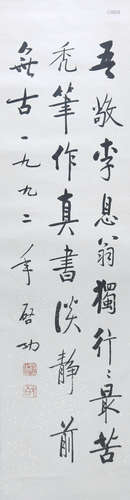 吾敬李息翁獨行:最苦
禿筆作真書淡靜前
無古一九九二
年啓功